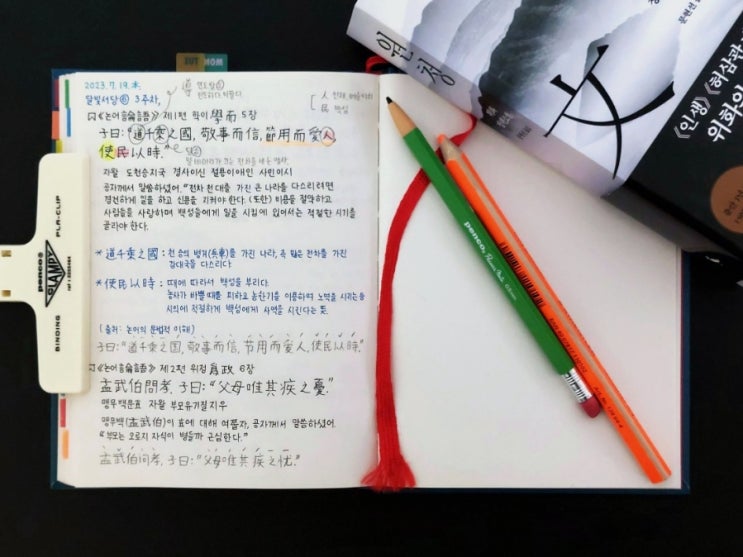 2023.7.19.木
달빛서당⑥ 3주차,
導 인도할 도
人
民 백성
《논어論語》 제1편 학이學而 5장
子曰: "道千乘之國, 敬事而信, 節用而愛人,
使民以時."
자왈 도천승지국 경사이신 절용이애인 사민이시
공자께서 말씀하셨어. "전차 천 대를 가진 큰 나라를 다스리려면
경건하게 일을 하고 신뢰를 지켜야 한다. (또한) 비용을 절약하고
사람들을 사랑하며 백성들에게 일을 시킴에 있어서는 적절한 시기를
골라야 한다.
*道千乘之國: 천 승의 병거(兵車)를 가진 나라, 즉 많은 전차를 가진
강대국을 다스리다.
*使民以時: 때에 따라서 백성을 부리다.
농사가 바쁠 때를 피하고 농한기를 이용하여 노역을 시키는 등
시의에 적절하게 백성에게 사역을 시킨다는 뜻.
(출처: 논어의 문법적 이해)
子曰: "道千乘之国, 敬事而信, 节用而爱人, 使民以时."
《논어論語》 제2편 위정 爲政 6장
孟武伯問孝, 子曰: "父母唯其疾之憂."
맹무백문효 자왈 부모유기질지우
맹무백(孟武伯)이 효에 대해 여쭙자, 공자께서 말씀하셨어.
"부모는 오로지 자식이 병들까 근심한다."
孟武伯问孝, 子曰: "父母唯其疾之忧."
OUT
MOM
PLA-CLIP
penco
CLAMPY
BINDING
penco
원청
女
《인생》《허삼관
위화의
문현선